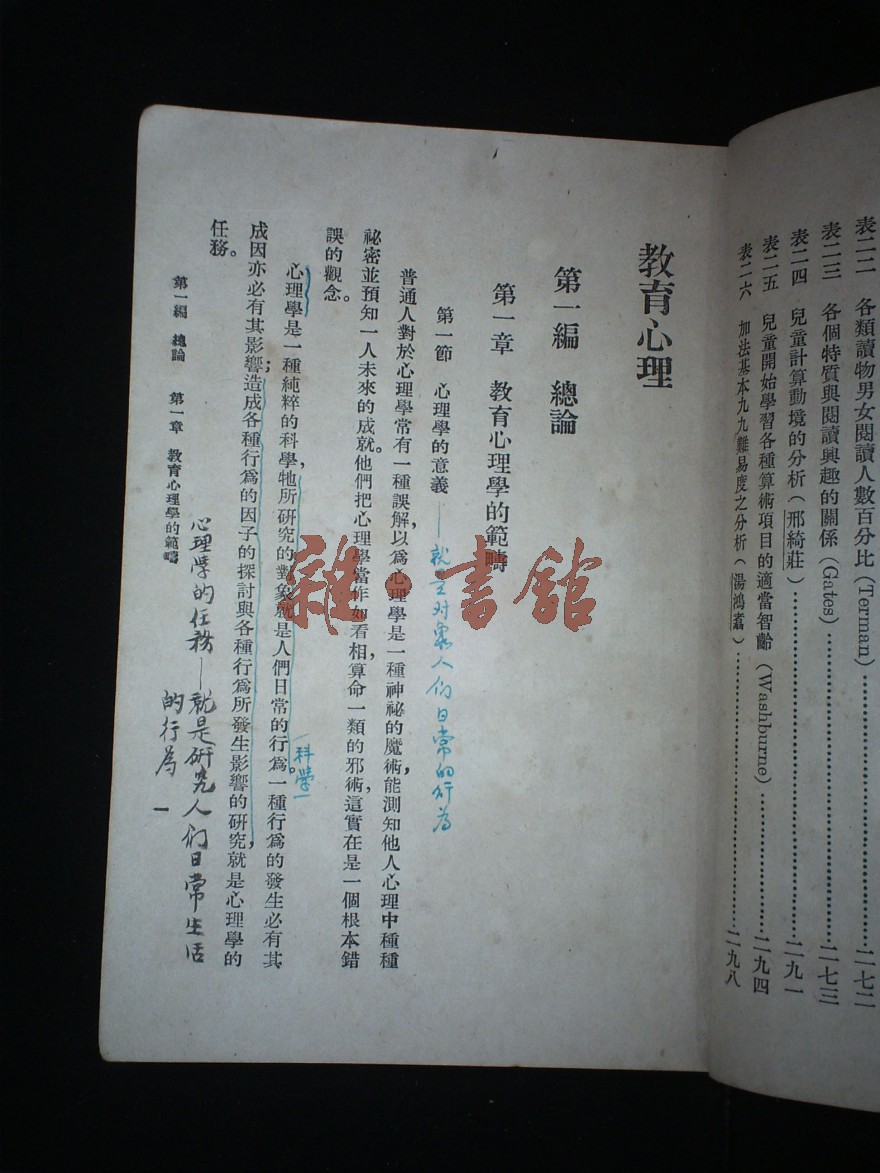 表二二　各類讀物男女閱讀人數百分比(Terman)……二七二
表二三　各個特質與閱讀興趣的關係(Gates)……二七三
表二四　兒童計算動境的分析(邢綺莊)……二九一
表二五　兒童開始學習各種算術項目的適當智齡(Washburne)……二九四
表二六　加法基本九九難易度之分析(湯鴻翥)……二九八
教育心理
第一編　總論
第一章　教育心理學的範疇
第一節　心理學的意義
——就是对象人们日常的行为
普通人對於心理學常有一種誤解,以爲心理學是一種神祕的魔術,能測知他人心理中種種
祕密並預知一人未來的成就。他們把心理學當作如看相算命一類的邪術,這實在是一個根本錯
誤的觀念。
心理學是一種純粹的科學,牠所研究的對象就是人們日常的行爲。一種行爲的發生必有其
科學
成因亦必有其影響;造成各種行爲的因子的探討與各種行爲所發生影響的研究,就是心理學的
任務。
第一編　總論　第一章　教育心理學的範疇
一
心理学的任務——就是研究人们日常生活
的行为
雜·書館